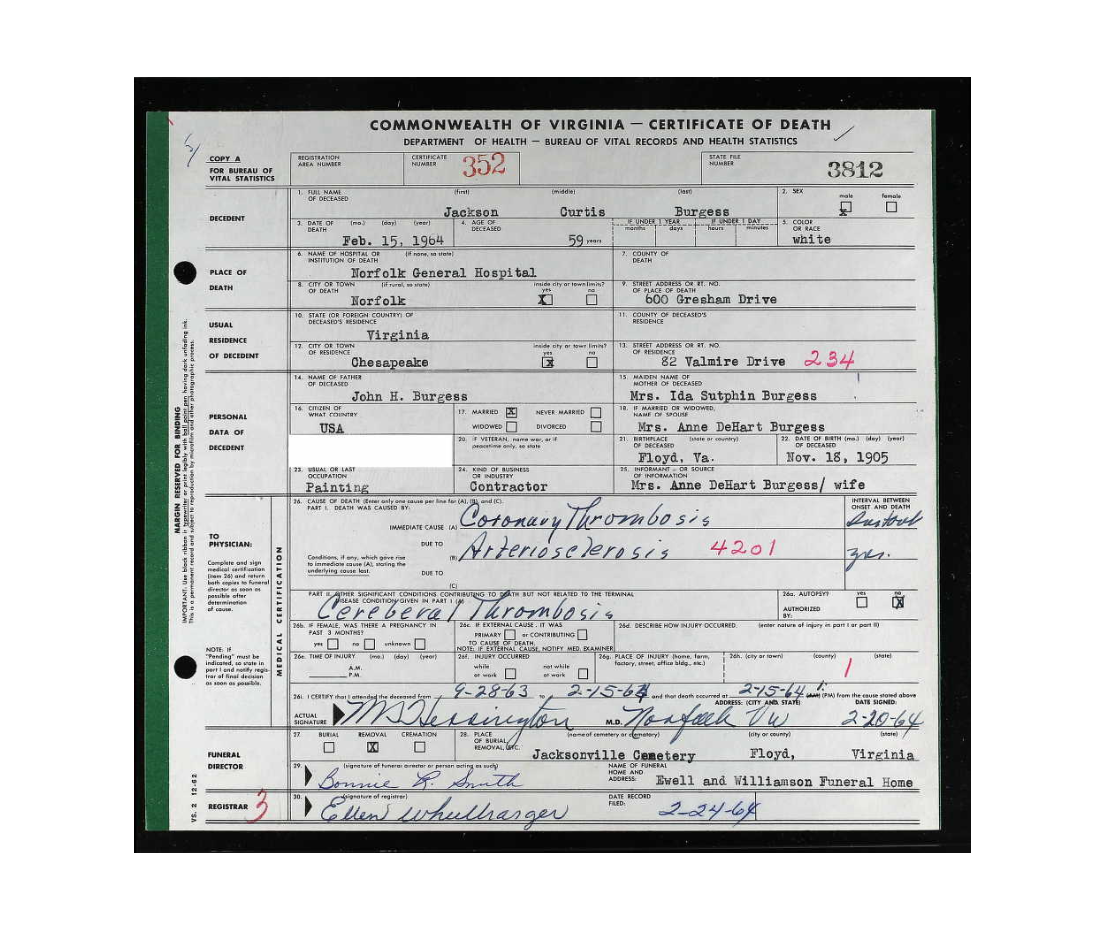 COMMONWEALTH OF VIRGINIA — CERTIFICATE OF DEATH
DEPARTMENT OF HEALTH — BUREAU OF VITAL RECORDS AND HEALTH STATISTICS
COPY A
FOR BUREAU OF
VITAL STATISTICS
REGISTRATION AREA NUMBER
CERTIFICATE NUMBER 352
STATE FILE NUMBER 3812
DECEDENT
1. FULL NAME OF DECEASED (first) (middle) (last)
Jackson Curtis Burgess
2. SEX male X female
3. DATE OF DEATH (mo.) (day) (year)
Feb. 15, 1964
4. AGE OF DECEASED
59 years
IF UNDER 1 YEAR months days
IF UNDER 1 DAY hours minutes
5. COLOR OR RACE
white
PLACE OF
DEATH
6. NAME OF HOSPITAL OR INSTITUTION OF DEATH (if none, so state)
Norfolk General Hospital
7. COUNTY OF DEATH
8. CITY OR TOWN OF DEATH (if rural, so state) inside city or town limits? yes X no
Norfolk
9. STREET ADDRESS OR RT. NO. OF PLACE OF DEATH
600 Gresham Drive
USUAL
RESIDENCE
OF DECEDENT
10. STATE (OR FOREIGN COUNTRY) OF DECEASED'S RESIDENCE
Virginia
11. COUNTY OF DECEASED'S RESIDENCE
12. CITY OR TOWN OF RESIDENCE inside city or town limits? yes X no
Chesapeake
13. STREET ADDRESS OR RT. NO. OF RESIDENCE
82 Valmire Drive 234
PERSONAL
DATA OF
DECEDENT
14. NAME OF FATHER OF DECEASED
John H. Burgess
15. MAIDEN NAME OF MOTHER OF DECEASED
Mrs. Ida Sutphin Burgess
16. CITIZEN OF WHAT COUNTRY
USA
17. MARRIED X NEVER MARRIED
WIDOWED DIVORCED
18. IF MARRIED OR WIDOWED, NAME OF SPOUSE
Mrs. Anne DeHart Burgess
20. IF VETERAN, name war, or if peacetime only, so state
21. BIRTHPLACE OF DECEASED (state or country)
Floyd, Va.
22. DATE OF BIRTH (mo.) (day) (year) OF DECEASED
Nov. 18, 1905
23. USUAL OR LAST OCCUPATION
Painting
24. KIND OF BUSINESS OR INDUSTRY
Contractor
25. INFORMANT — OR SOURCE OF INFORMATION
Mrs. Anne DeHart Burgess/ wife
MARGIN RESERVED FOR BINDING
IMPORTANT: Use black ribbon in typewriter or print legibly with ball point pen having dark unfading ink.
This is a permanent record and subject to reproduction by microfilm and other photographic process.
TO
PHYSICIAN:
Complete and sign
medical certification
(item 26) and return
both copies to funeral
director as soon as
possible after
determination
of cause.
NOTE: IF
"Pending" must be
indicated, so state in
part I and notify regis-
trar of final decision
as soon as possible.
MEDICAL CERTIFICATION
26. CAUSE OF DEATH (Enter only one cause per line for (A), (B), and (C).
PART I. DEATH WAS CAUSED BY:
INTERVAL BETWEEN ONSET AND DEATH
IMMEDIATE CAUSE (A) Coronary Thrombosis
DUE TO
(B) Arteriosclerosis 4201 yrs.
Conditions, if any, which gave rise
to immediate cause (A), stating the
underlying cause last.
DUE TO
(C)
PART II. OTHER SIGNIFICANT CONDITIONS CONTRIBUTING TO DEATH BUT NOT RELATED TO THE TERMINAL
DISEASE CONDITION GIVEN IN PART I (A)
Cerebral Thrombosis
26a. AUTOPSY? yes no X
AUTHORIZED BY:
26b. IF FEMALE, WAS THERE A PREGNANCY IN PAST 3 MONTHS?
yes no unknown
26c. IF EXTERNAL CAUSE, IT WAS
PRIMARY or CONTRIBUTING
TO CAUSE OF DEATH.
NOTE: IF EXTERNAL CAUSE, NOTIFY MED. EXAMINER
26d. DESCRIBE HOW INJURY OCCURRED. (enter nature of injury in part I or part II)
26e. TIME OF INJURY (mo.) (day) (year)
A.M.
P.M.
26f. INJURY OCCURRED
while at work not while at work
26g. PLACE OF INJURY (home, farm, factory, street, office bldg., etc.)
26h. (city or town) (county) (state)
1
26i. I CERTIFY that I attended the deceased from 9-28-63 to 2-15-64 and that death occurred at 2-15-64 (AM) (PM) from the cause stated above
ACTUAL SIGNATURE M.D.
ADDRESS: (CITY AND STATE) Norfolk Va
DATE SIGNED: 2-20-64
FUNERAL
DIRECTOR
27. BURIAL REMOVAL X CREMATION
28. PLACE OF BURIAL, REMOVAL, ETC. (name of cemetery or crematory) (city or county) (state)
Jacksonville Cemetery Floyd, Virginia
29. (signature of funeral director or person acting as such)
Bonnie R. Smith
NAME OF FUNERAL HOME AND ADDRESS: Ewell and Williamson Funeral Home
REGISTRAR 3
30. (signature of registrar)
Ellen
DATE RECORD FILED: 2-24-64
VS. 2 12-62